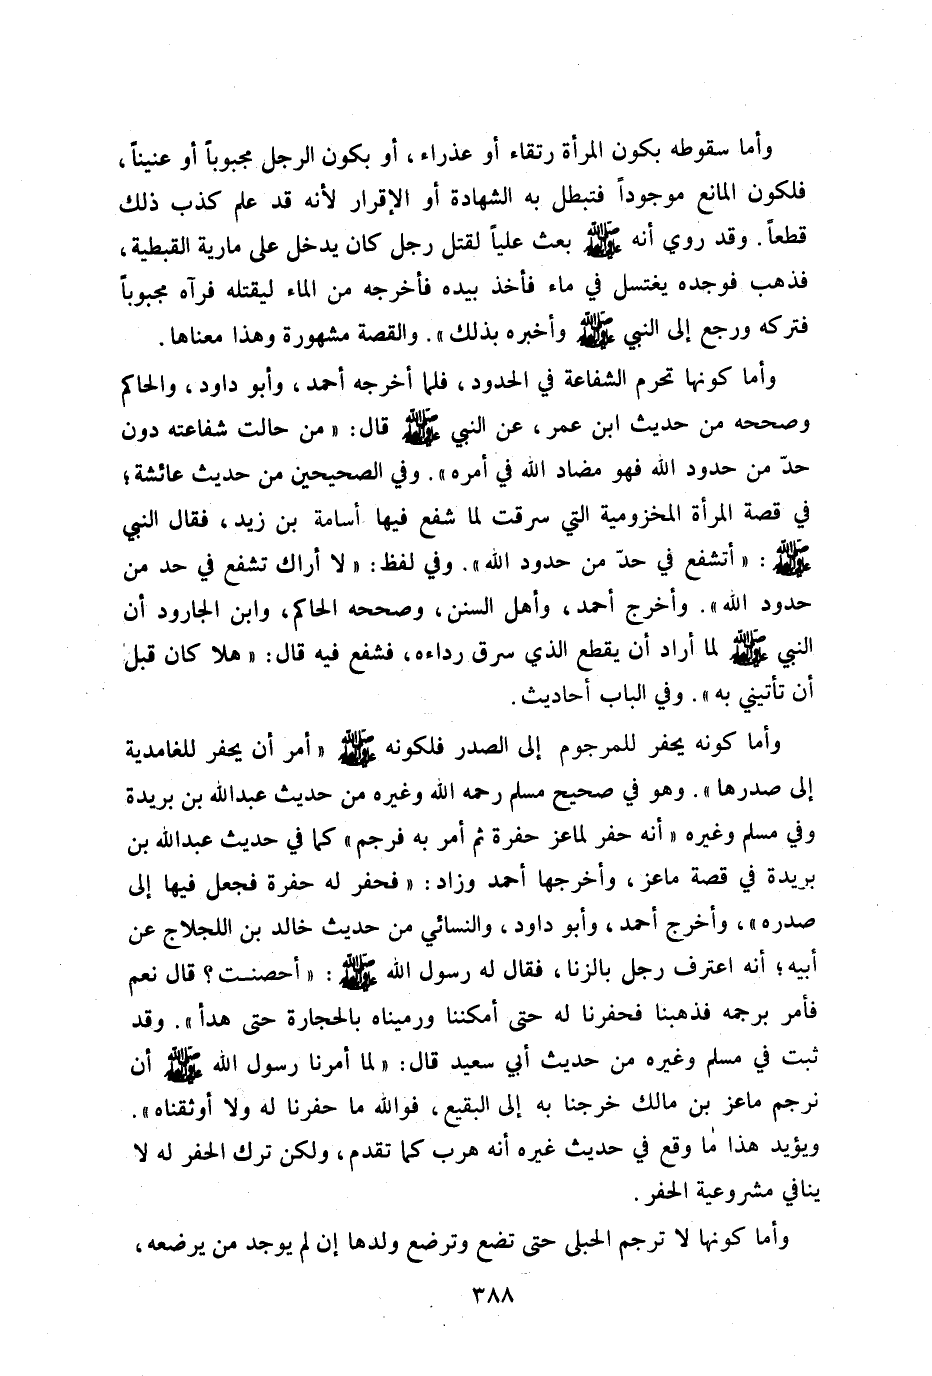 وأما سقوطه بكون المرأة رتقاء أو عذراء ، أو بكون الرجل مجبوباً أو عنيناً ،
فلكون المانع موجوداً فتبطل به الشهادة أو الإقرار لأنه قد علم كذب ذلك
قطعاً . وقد روي أنه ﷺ بعث علياً لقتل رجل كان يدخل على مارية القبطية ،
فذهب فوجده يغتسل في ماء فأخذ بيده فأخرجه من الماء ليقتله فرآه مجبوباً
فتركه ورجع إلى النبي ﷺ وأخبره بذلك » . والقصة مشهورة وهذا معناها .
وأما كونها تحرم الشفاعة في الحدود ، فلما أخرجه أحمد ، وأبو داود ، والحاكم
وصححه من حديث ابن عمر ، عن النبي ﷺ قال : « من حالت شفاعته دون
حدّ من حدود الله فهو مضاد الله في أمره » . وفي الصحيحين من حديث عائشة ؛
في قصة المرأة المخزومية التي سرقت لما شفع فيها أسامة بن زيد ، فقال النبي
ﷺ : « أتشفع في حدّ من حدود الله » . وفي لفظ : « لا أراك تشفع في حد من
حدود الله » . وأخرج أحمد ، وأهل السنن ، وصححه الحاكم ، وابن الجارود أن
النبي ﷺ لما أراد أن يقطع الذي سرق رداءه ، فشفع فيه قال : « هلا كان قبل
أن تأتيني به » . وفي الباب أحاديث .
وأما كونه يحفر للمرجوم إلى الصدر فلكونه ﷺ « أمر أن يحفر للغامدية
إلى صدرها » . وهو في صحيح مسلم رحمه الله وغيره من حديث عبدالله بن بريدة
وفي مسلم وغيره « أنه حفر لماعز حفرة ثم أمر به فرجم » كما في حديث عبدالله بن
بريدة في قصة ماعز ، وأخرجها أحمد وزاد : « فحفر له حفرة فجعل فيها إلى
صدره » ، وأخرج أحمد ، وأبو داود ، والنسائي من حديث خالد بن اللجلاج عن
أبيه ؛ أنه اعترف رجل بالزنا ، فقال له رسول الله ﷺ : « أحصنت ؟ قال نعم
فأمر برجمه فذهبنا فحفرنا له حتى أمكننا ورميناه بالحجارة حتى هدأ » . وقد
ثبت في مسلم وغيره من حديث أبي سعيد قال : « لما أمرنا رسول الله ﷺ أن
نرجم ماعز بن مالك خرجنا به إلى البقيع ، فوالله ما حفرنا له ولا أوثقناه » .
ويؤيد هذا ما وقع في حديث غيره أنه هرب كما تقدم ، ولكن ترك الحفر له لا
ينافي مشروعية الحفر .
وأما كونها لا ترجم الحبلى حتى تضع وترضع ولدها إن لم يوجد من يرضعه ،
٣٨٨